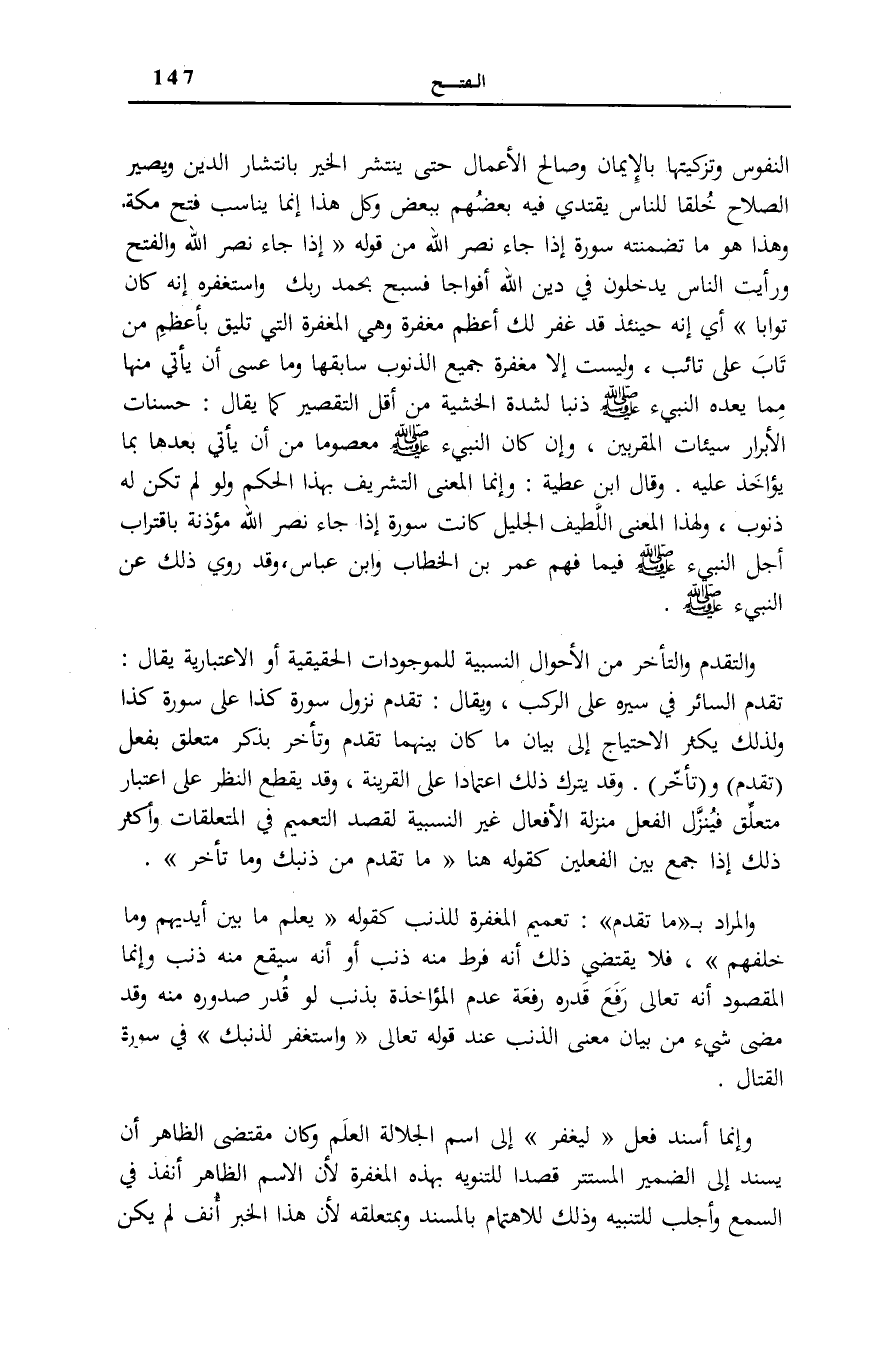 الفتح 147
النفوس وتزكيتها بالإيمان وصالح الأعمال حتى ينتشر الخير بانتشار الدين ويصير
الصلاح خُلقا للناس يقتدي فيه بعضُهم ببعض وكل هذا إنما يناسب فتح مكة.
وهذا هو ما تضمنته سورة إذا جاء نصر الله من قوله « إذا جاء نصر الله والفتح
ورأيت الناس يدخلون في دين الله أفواجا فسبح بحمد ربك واستغفره إنه كان
توابا » أي إنه حينئذ قد غفر لك أعظم مغفرة وهي المغفرة التي تليق بأعظمِ من
تَابَ على تائب ، وليست إلا مغفرة جميع الذنوب سابقها وما عسى أن يأتي منها
مِما يعده النبيء ﷺ ذنبا لشدة الخشية من أقل التقصير كما يقال : حسنات
الأبرار سيئات المقربين ، وإن كان النبيء ﷺ معصوما من أن يأتي بعدها بما
يؤاخَذ عليه . وقال ابن عطية : وإنما المعنى التشريف بهذا الحكم ولو لم تكن له
ذنوب ، ولهذا المعنى اللَّطيف الجليل كانت سورة إذا جاء نصر الله مؤذنة باقتراب
أجل النبيء ﷺ فيما فهم عمر بن الخطاب وابن عباس،وقد روي ذلك عن
النبيء ﷺ .
والتقدم والتأخر من الأحوال النسبية للموجودات الحقيقية أو الاعتبارية يقال :
تقدم السائر في سيره على الركب ، ويقال : تقدم نزول سورة كذا على سورة كذا
ولذلك يكثر الاحتياج إلى بيان ما كان بينهما تقدم وتأخر بذكر متعلق بفعل
(تقدم) و(تأخّر) . وقد يترك ذلك اعتمادا على القرينة ، وقد يقطع النظر على اعتبار
متعلِّق فيُنزَّل الفعل منزلة الأفعال غير النسبية لقصد التعميم في المتعلقات وأكثر
ذلك إذا جمع بين الفعلين كقوله هنا « ما تقدم من ذنبك وما تأخر » .
والمراد بـ«ما تقدم» : تعميم المغفرة للذنب كقوله « يعلم ما بين أيديهم وما
خلفهم » ، فلا يقتضي ذلك أنه فرط منه ذنب أو أنه سيقع منه ذنب وإنما
المقصود أنه تعالى رَفَعَ قَدره رفعَة عدم المؤاخذة بذنب لو قُدر صدوره منه وقد
مضى شيء من بيان معنى الذنب عند قوله تعالى « واستغفر لذنبك » في سورة
القتال .
وإنما أسند فعل « ليغفر » إلى اسم الجلالة العلَم وكان مقتضى الظاهر أن
يسند إلى الضمير المستتر قصدا للتنويه بهذه المغفرة لأن الاسم الظاهر أنفذ في
السمع وأجلب للتنبيه وذلك للاهتمام بالمسند وبمتعلقه لأن هذا الخبر أُنف لم يكن